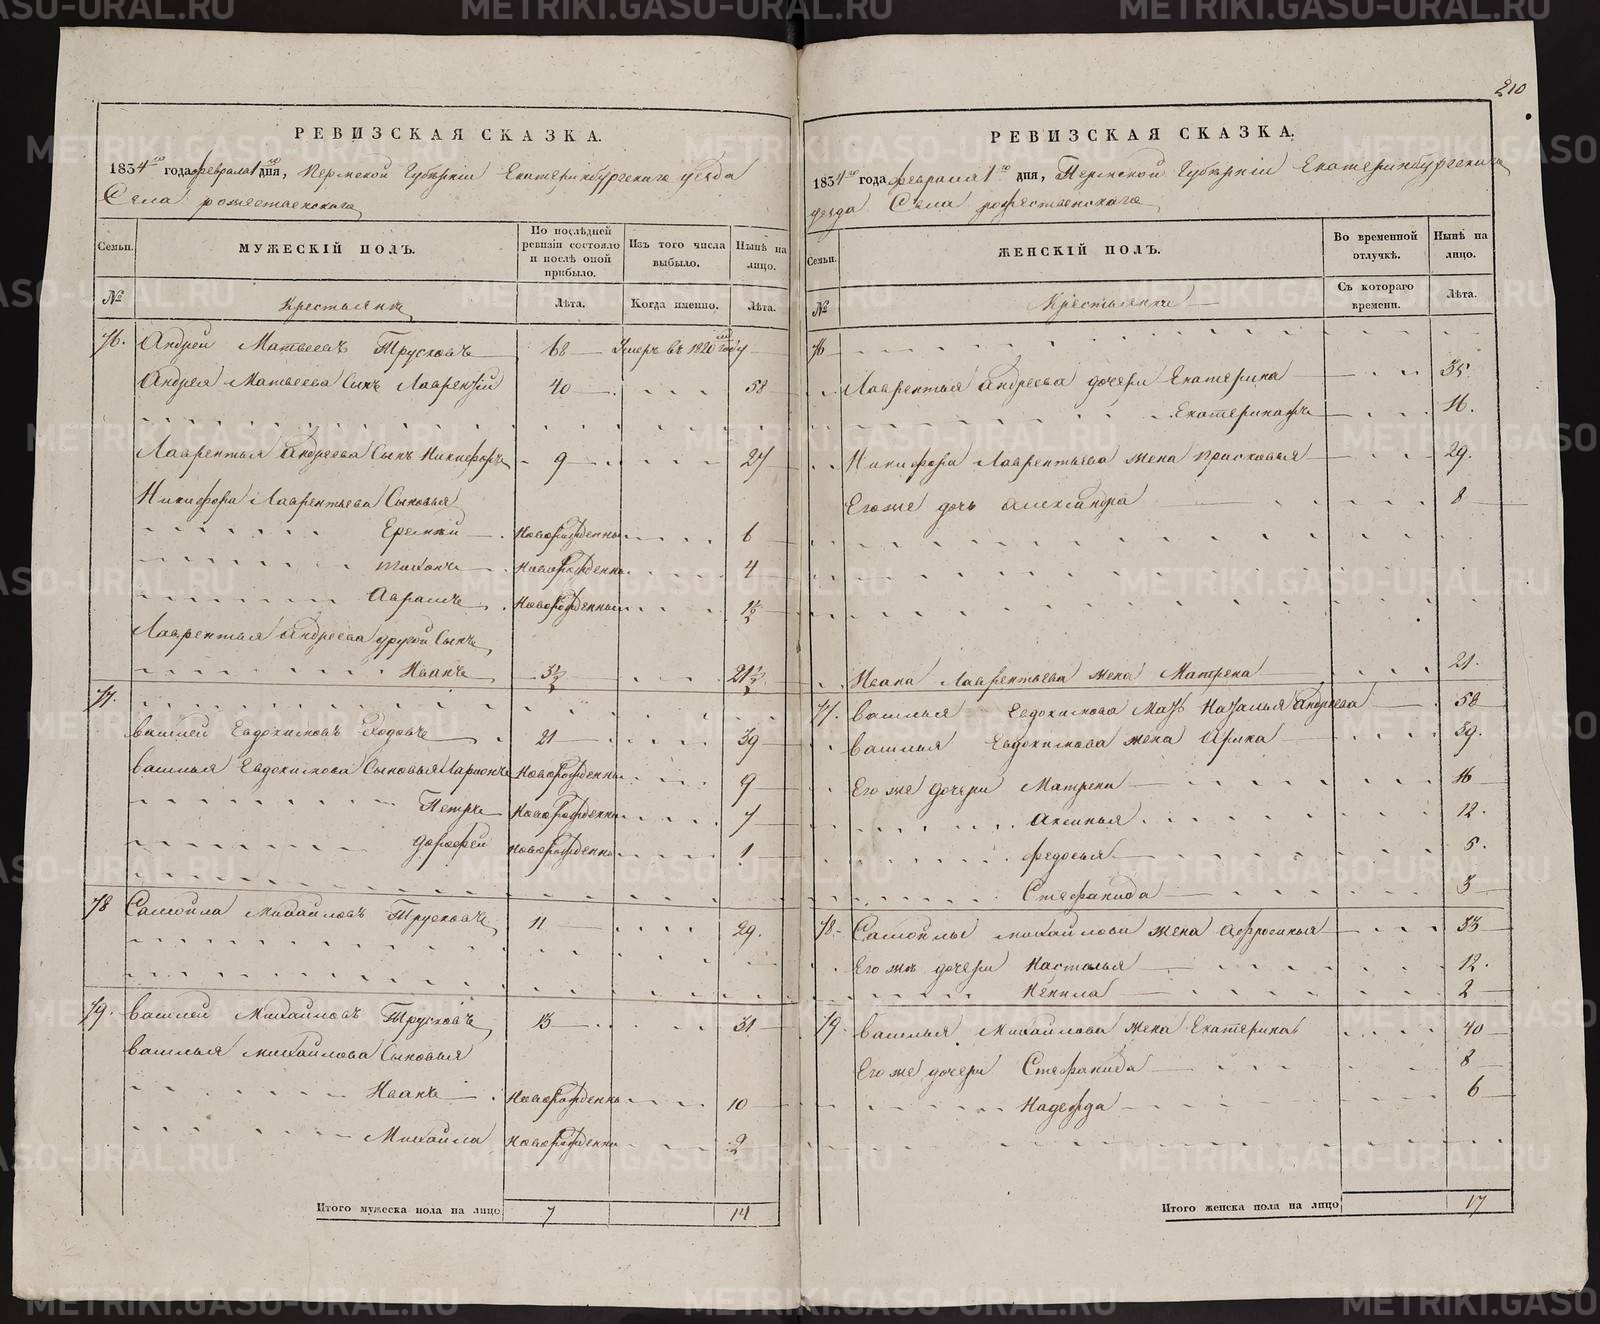 210
РЕВИЗСКАЯ СКАЗКА.
1834го года февраля 1го дня, Пермской Губерніи Екатеринбургскаго уезда
Села рожественскаго
Семьи.
МУЖЕСКІЙ ПОЛЪ.
По послѣдней ревизіи состояло и послѣ оной прибыло.
Изъ того числа выбыло.
Нынѣ на лицо.
№
Крестьянъ
Лѣта.
Когда именно.
Лѣта.
76. Андрей Матвеевъ Трусковъ 68 Умеръ въ 1820м году
Андрея Матвеева Сынъ Лаврентій 40 58
Лаврентья Андреева Сынъ Никифоръ 9 27
Никифора Лаврентьева Сыновья
Еремей Новорожденны 6
Тихонъ Новорожденны 4
Аврамъ Новорожденны 1½
Лаврентья Андреева другой Сынъ
Иванъ 3½ 21½
77.
василей Евдокимовъ Ходовъ 21 39
василья Евдокимова Сыновья Ларионъ Новорожденны 9
Петръ Новорожденны 7
дорофей Новорожденны 1
78 Самойла михайловъ Трусковъ 11 29.
79. василей Михайловъ Трусковъ 13 31
василья михайлова Сыновья
Иванъ Новорожденны 10
Михайла Новорожденны 2
Итого мужеска пола на лицо 7 14
РЕВИЗСКАЯ СКАЗКА.
1834го года февраля 1го дня, Пермской Губерніи Екатеринбургскаго
уезда Села рожественскаго
Семьи.
ЖЕНСКІЙ ПОЛЪ.
Во временной отлучкѣ.
Нынѣ на лицо.
№
Крестьянъ
Съ котораго времени.
Лѣта.
76
Лаврентья Андреева дочери Екатерина 35.
Екатерина ж 16.
Никифора Лаврентьева жена Прасковья 29.
Егоже дочь Александра 8
Ивана Лаврентьева жена Матрена 21.
77. василья Евдокимова Мать Наталья Андреева 58
василья Евдокимова жена Арина 39.
Его же дочери Матрена 16
Аксинья 12.
федосья 5.
Стефанида 3
78. Самойлы михайлова жена Афросинья 33
Его же дочери Насталья 12.
Ненила 2
79. василья Михайлова жена Екатерина 40
Его же дочери Стефанида 8
Надежда 6
Итого женска пола на лицо 17
METRIKI.GASO-URAL.RU